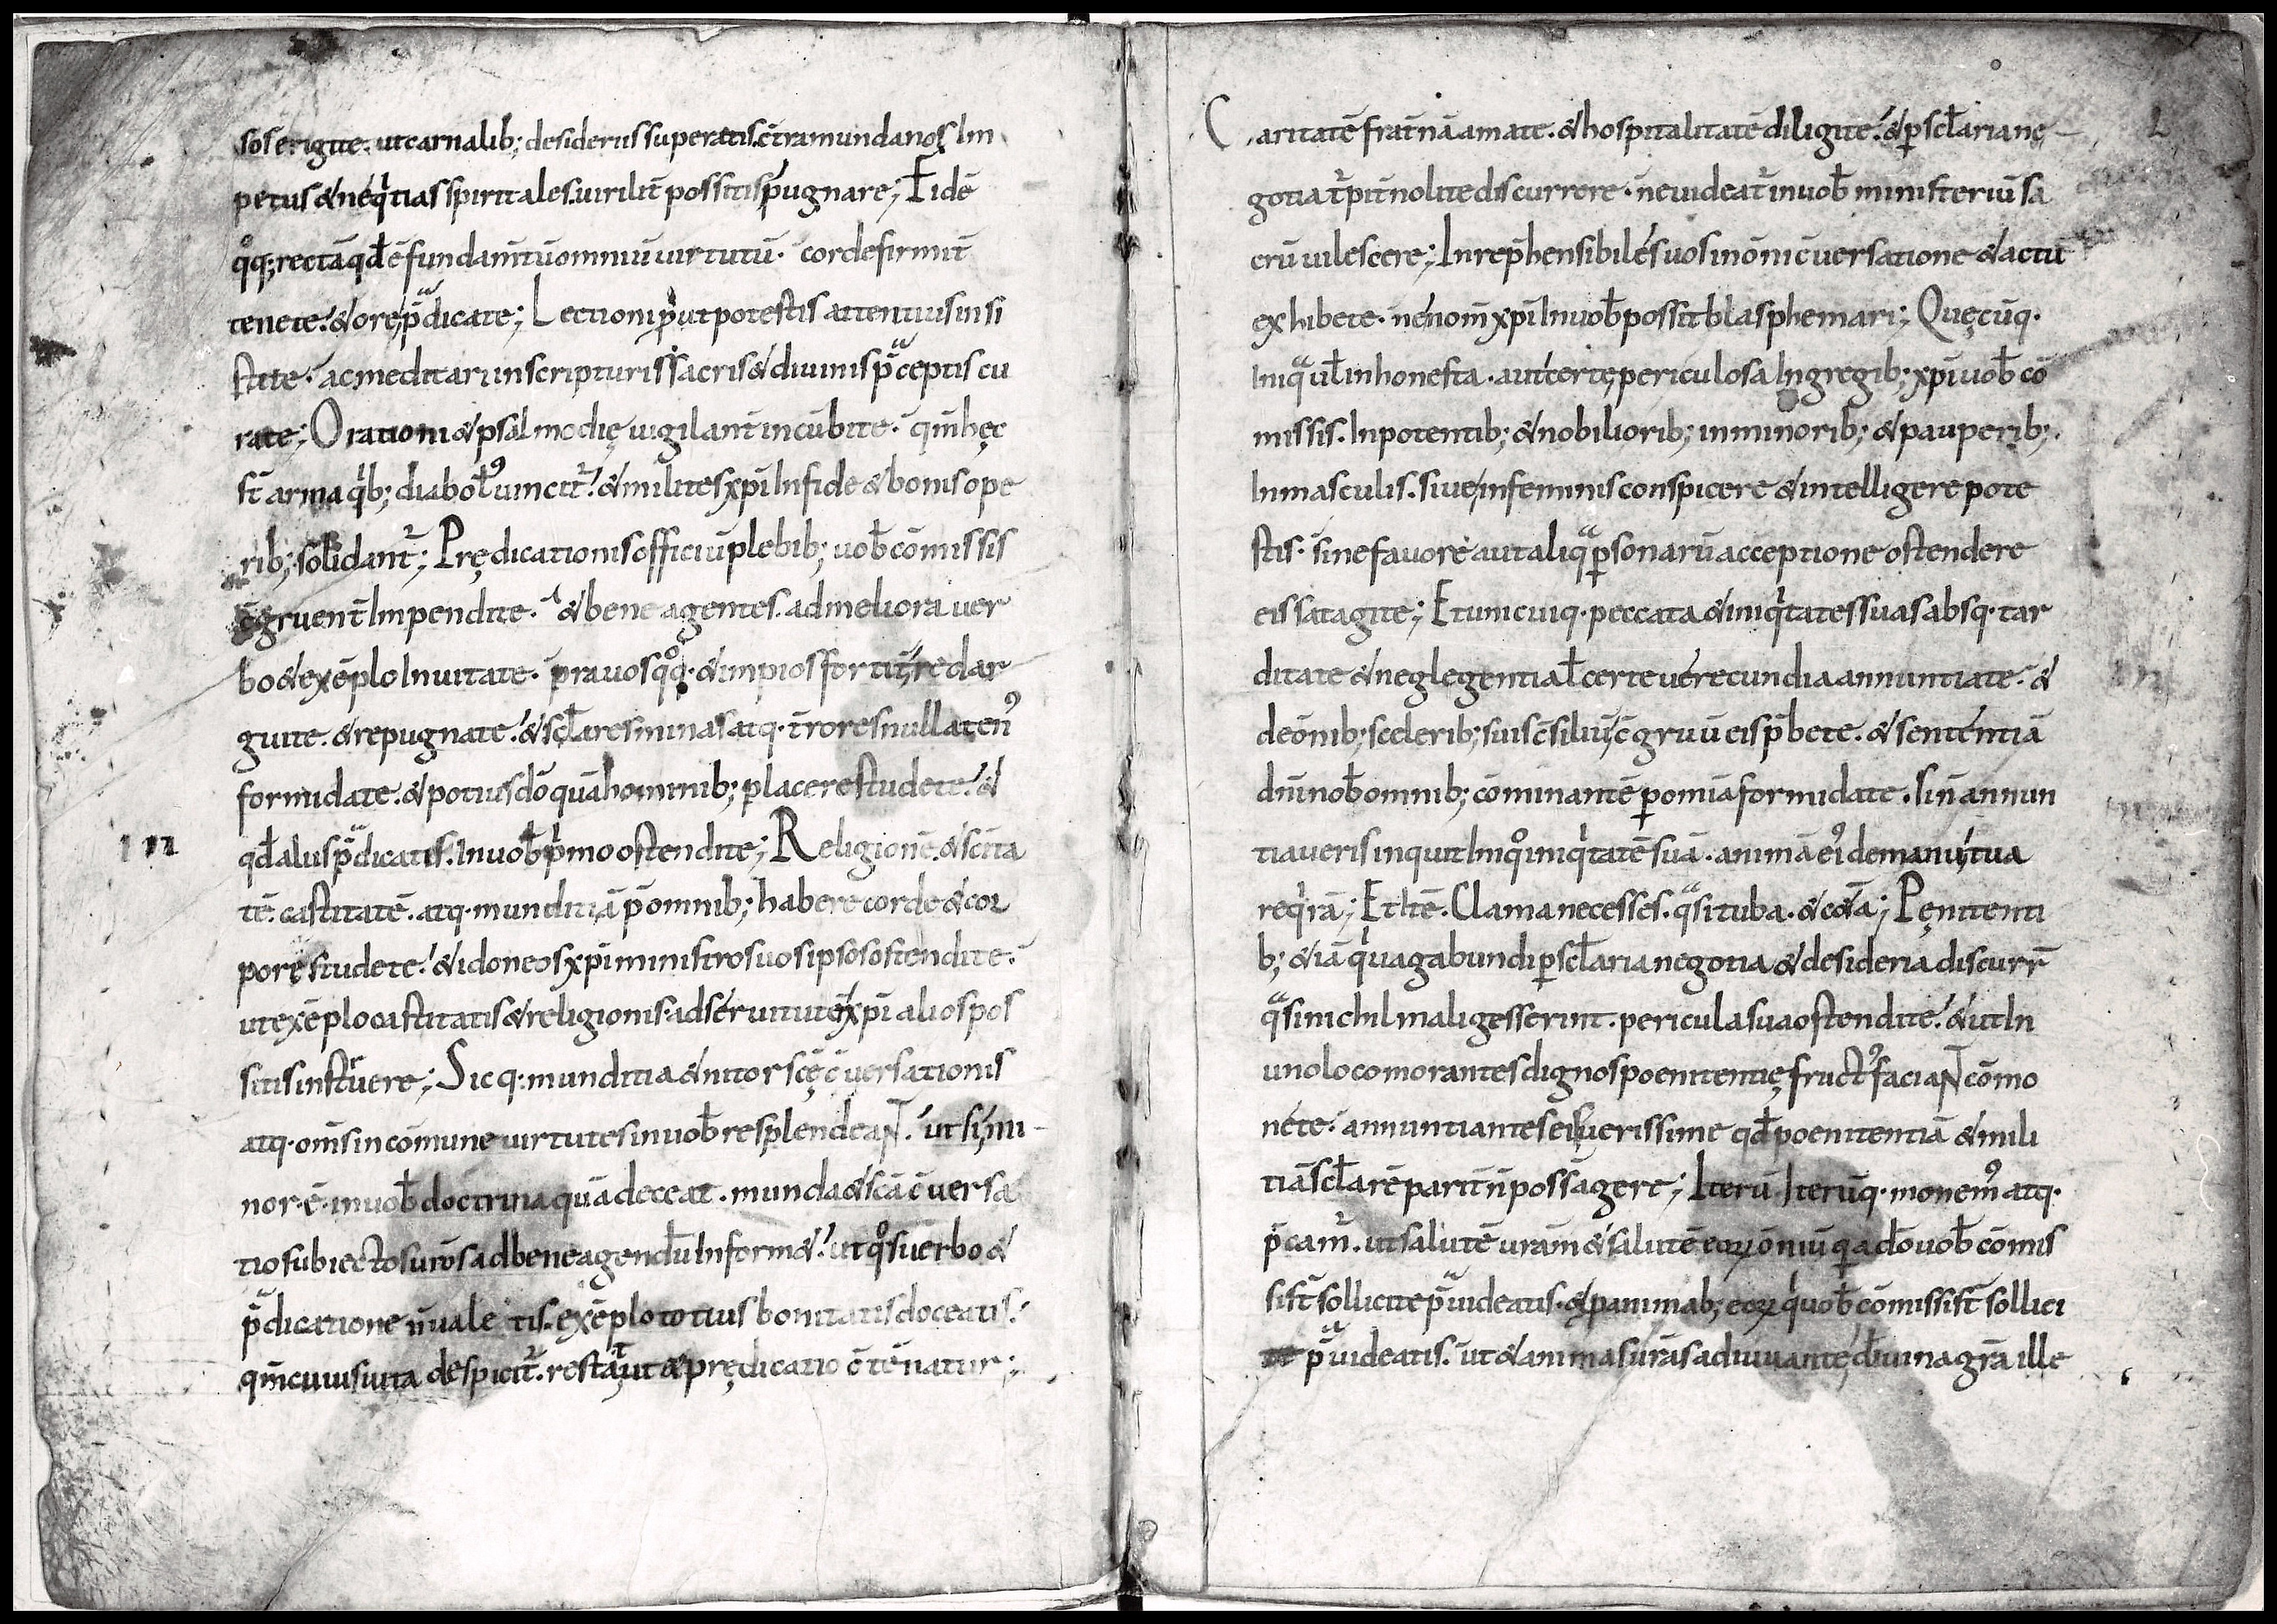 sos erigite. ut carnalib; desideriis superatis. c̄tra mundanos Im
petus & neq̍tias spiritales. uirilit̄ possitis p̄ugnare; Fidē
qͦq; rectā qđ ē fundam̄tū omniū uirtutū. corde firmit̄
tenete. & ore p̄dicate; Lectioni p̍ut potestis attentius insi
stite. ac meditari in scripturis sacris & diuinis p̄ceptis cu
rate; Orationi & psalmodię uigilant̄ incūbite. qm̄ hęc
st̄ arma q̍b; diabol᷒ uincit᷑. & milites xp̄i In fide & bonis ope
rib; solidant᷑; Prędicationis officiū plebib; uob̄ cōmissis
c̄gruent̄ Impendite. & bene agentes. ad meliora uer
bo & exēplo Inuitate. prauos qͦq. & impios fortit̄ redar
guite. & repugnate. & sc̄lares minas atq. t̄rores nullaten᷒
formidate. & potius dō quā hominib; placere studete. &
qđ aliis p̄dicatis. In uob̄ p̍mo ostendite; Religionē. & sc̄ita
tē. castitatē. atq. munditiā p̄ omnib; habere corde & cor
pore studete. & idoneos xp̄i ministros uos ipsos ostendite.
ut exēplo castitatis & religionis. ad seruitutē xp̄i alios pos
sitis instruere; Sicq. munditia & nitor sc̄ę c̄uersationis
atq. om̄s in cōmune uirtutes in uob̄ resplendeant. ut si mi
nor. ē. in uob̄ doctrina quā deceat. munda & sc̄a c̄uersa
tio subiectos ur̄os ad bene agendū Inform&. ut qͦs uerbo &
p̄dicatione n̄ uale tis. exēplo totius bonitatis doceatis.
qm̄ cuius uita despicit᷑. restat ut & prędicatio c̄tēnatur;
Caritatē frat̄nā amate. & hospitalitatē diligite. & p̱ sc̄laria ne
gotia t᷑pit̄ nolite discurrere. ne uideat᷑ in uob̄ ministeriū sa
crū uilescere; Inrep̄hensibiles uos in ōni c̄uersatione & actu
exhibete. ne nom̄ xp̄i In uob̄ possit blasphemari; Quęcūq.
Iniqᵃ ūl inhonesta. aut certe periculosa In gregib; xp̄i uob̄ cō
missis. In potentib; & nobiliorib; in minorib; & pauperib;.
In masculis. siue in feminis conspicere & intelligere pote
stis. sine fauore aut aliqᵃ p̱sonarū acceptione ostendere
eis satagite; Et unicuiq. peccata & iniq̍tates suas absq. tar
ditate & neglegentia ł certe uerecundia annuntiate. &
de ōnib; scelerib; suis c̄siliū c̄gruū eis p̄bete. & sententiā
dn̄i nob̄ omnib; cōminantē p̱ omīa formidate. Si n̄ annun
tiaueris inquit Imqͦ iniq̍tatē suā. animā ei᷒ de manu tua
req̍rā; Et Itē. Clama ne cesses. qᵃsi tuba. & c&̄a; Pęnitenti
b; & iā q̍ uagabundi p̱ sc̄laria negotia & desideria discurr̄
qᵃsi nichil mali gesserint. pericula sua ostendite. & ut In
uno loco morantes dignos poenitentię fruct᷒ faciant cōmo
nete. annuntiantes eis uerissime qđ poenitentiā & mili
tiā sc̄larē parit̄ n̄ poss̄ agere; Iterū Iterūq. monem᷒ atq.
p̄cam᷑. ut salutē ur̄am & salutē eoꝝ ōniū q̱ a dō uob̄ cōmis
si st̄ sollicite p̄uideatis. & p̱ animab; eoꝝ q̍ uob̄ cōmissi st̄ sollici
te p̄uideatis. ut & animas ur̄as adiuuante diuina gr̄a ille